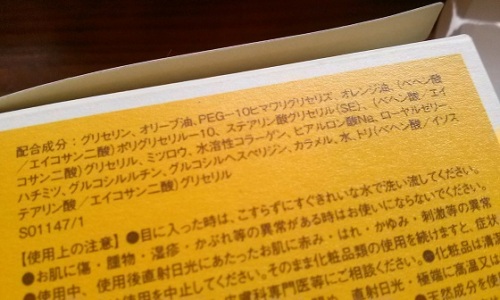 配合成分：グリセリン、オリーブ油、PEG-10ヒマワリグリセリズ、オレンジ油、(ベヘン酸
/エイコサン二酸)ポリグリセリル-10、ステアリン酸グリセリル(SE)、(ベヘン酸/エイ
コサン二酸)グリセリル、ミツロウ、水溶性コラーゲン、ヒアルロン酸Na、ローヤルゼリー、
ハチミツ、グルコシルルチン、グルコシルヘスペリジン、カラメル、水、トリ(ベヘン酸/イソス
テアリン酸/エイコサン二酸)グリセリル
S01147/1
【使用上の注意】●目に入った時は、こすらずにすぐきれいな水で洗い流してください。
●お肌に傷・腫物・湿疹・かぶれ等の異常がある時はお使いにならないでください。
●使用中、使用後直射日光にあたったお肌に赤み・はれ・かゆみ・刺激等の異常
使用を中止してください。そのまま化粧品類の使用を続けますと、症状
皮膚科専門医等にご相談ください。●化粧品は清
直射日光・極端に高温又は
天然成分を使